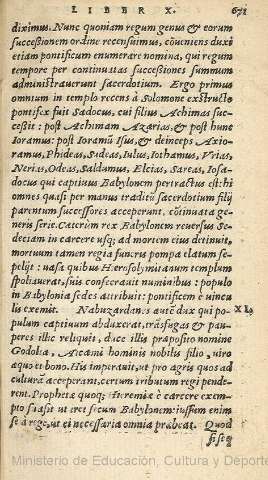 LIBER X. 671
diximus. Nunc quoniam regum genus & eorum
successionem ordine recensuimus, cōueniens duxi
etiam pontificum enumerare nomina, qui regum
tempore per continuatas successiones summum
administrauerunt sacerdotium. Ergo primus
omnium in templo recens à Solomone exstructo
pontifex fuit Sadocus, cui filius Achimas suc-
cessit: post Achimam Azarias, & post hunc
Ioramus: post Ioramū Isus, & deinceps Axio-
ramus, Phideas, Sudeas, Iulus, Iothamus, Vrias,
Nerias, Odeas, Saldumus, Elcias, Sareas, Iosa-
docus qui captiuus Babylonem pertractus est: hi
omnes quasi per manus traditū sacerdotium filij
parentum successores acceperunt, cōtinuata ge-
neris serie. Cæterùm rex Babylonem reuersus Se-
deciam in carcere usq; ad mortem eius detinuit,
mortuum tamen regia funeris pompa elatum se-
pelijt: uasa quibus Hierosolymitanum templum
spoliauerat, suis consecrauit numinibus: populo
in Babylonia sedes attribuit: pontificem è uincu
lis exemit. Nabuzardanes autē dux qui po-
XI.
pulum captiuum abduxerat, trāsfugas & pau-
peres illic reliquit, duce illis præposito nomine
Godolia, Aicami hominis nobilis filio, uiro
æquo et bono. His imperauit, ut pro agris quos ad
culturā acceperant, certum tributum regi pende-
rent. Prophetæ quoq; Hieremiæ è carcere exem-
pto suasit ut iret secum Babylonem: iussum enim
se à rege, ut ei necessaria omnia præbeat. Quod
si secū
Ministerio de Educación, Cultura y Deporte